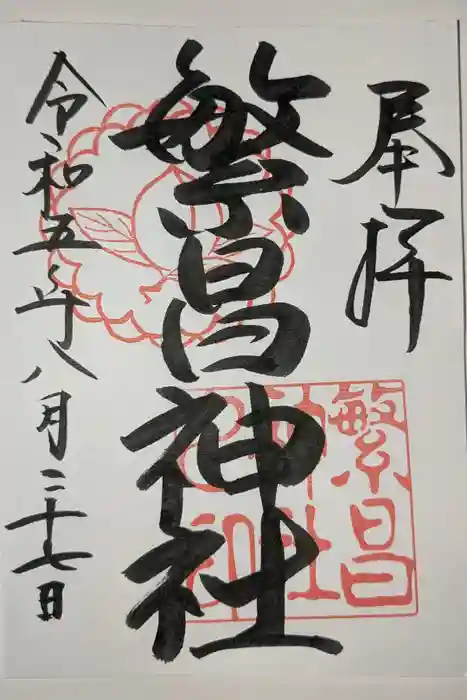 奉拝
繁昌神社
令和五年八月二十七日
繁昌
神社